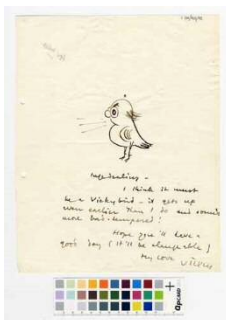 I think it must
be a Vickybird - it gets up
even earlier than I do and sounds
more bad-tempered!
Hope you'll have a
good day (it'll be changeable)
my love
Vicky